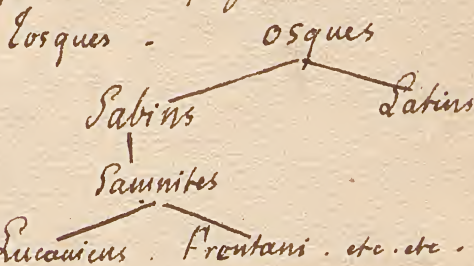 Tosques - Osques
Sabins Latins
Samnites
Lucaniens . Frentani . etc. etc.